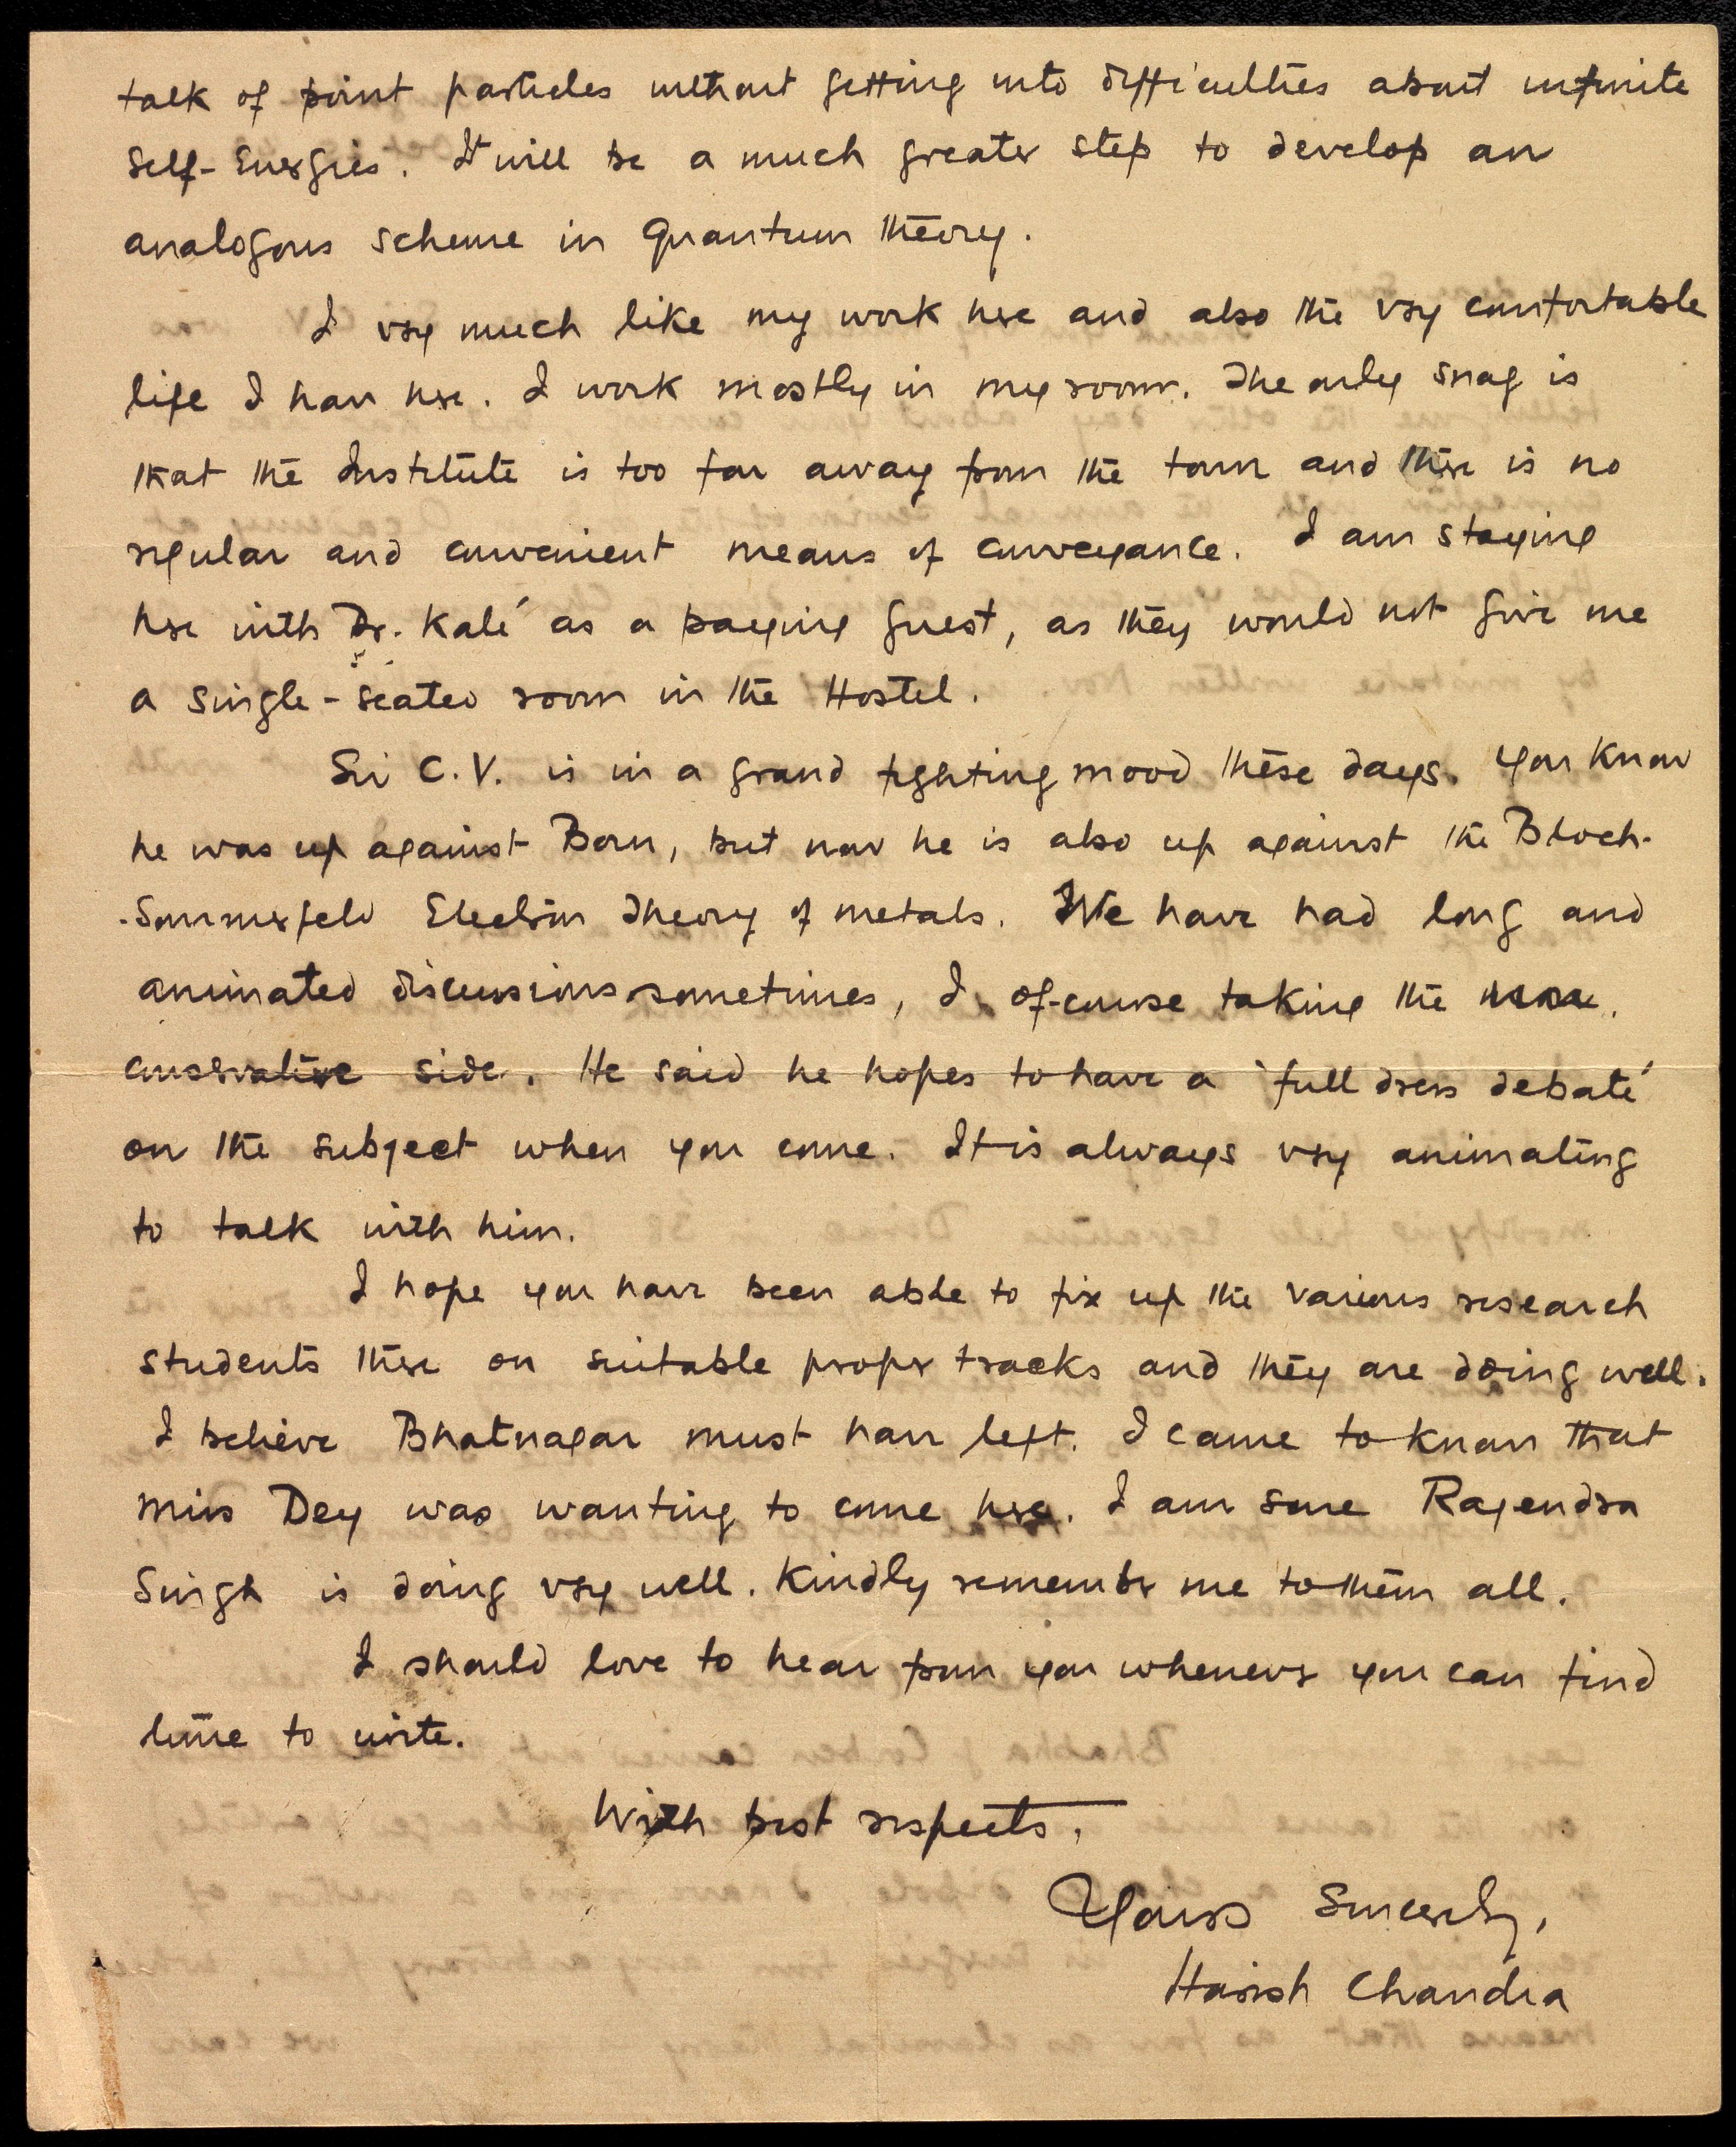 talk of point particles without getting into difficulties about infinite
self-energies. It will be a much greater step to develop an
analogous scheme in Quantum theory.
I very much like my work here and also the very comfortable
life I have here. I work mostly in my room. The only snag is
that the Institute is too far away from the town and there is no
regular and convenient means of conveyance. I am staying
here with Dr. Kalé as a paying guest, as they would not give me
a single-seated room in the Hostel.
Sir C.V. is in a grand fighting mood these days. You know
he was up against Born, but now he is also up against the Bloch-
-Sommerfeld Electron Theory of metals. We have had long and
animated discussions sometimes, I of-course taking the
conservative side. He said he hopes to have a 'full dress debate'
on the subject when you come. It is always very animating
to talk with him.
I hope you have been able to fix up the various research
students there on suitable proper tracks and they are doing well.
I believe Bhatnagar must have left. I came to know that
Miss Dey was wanting to come here. I am sure Rajendra
Singh is doing very well. Kindly remember me to them all.
I should love to hear from you whenever you can find
time to write.
With best respects,
Yours Sincerely,
Harish Chandra